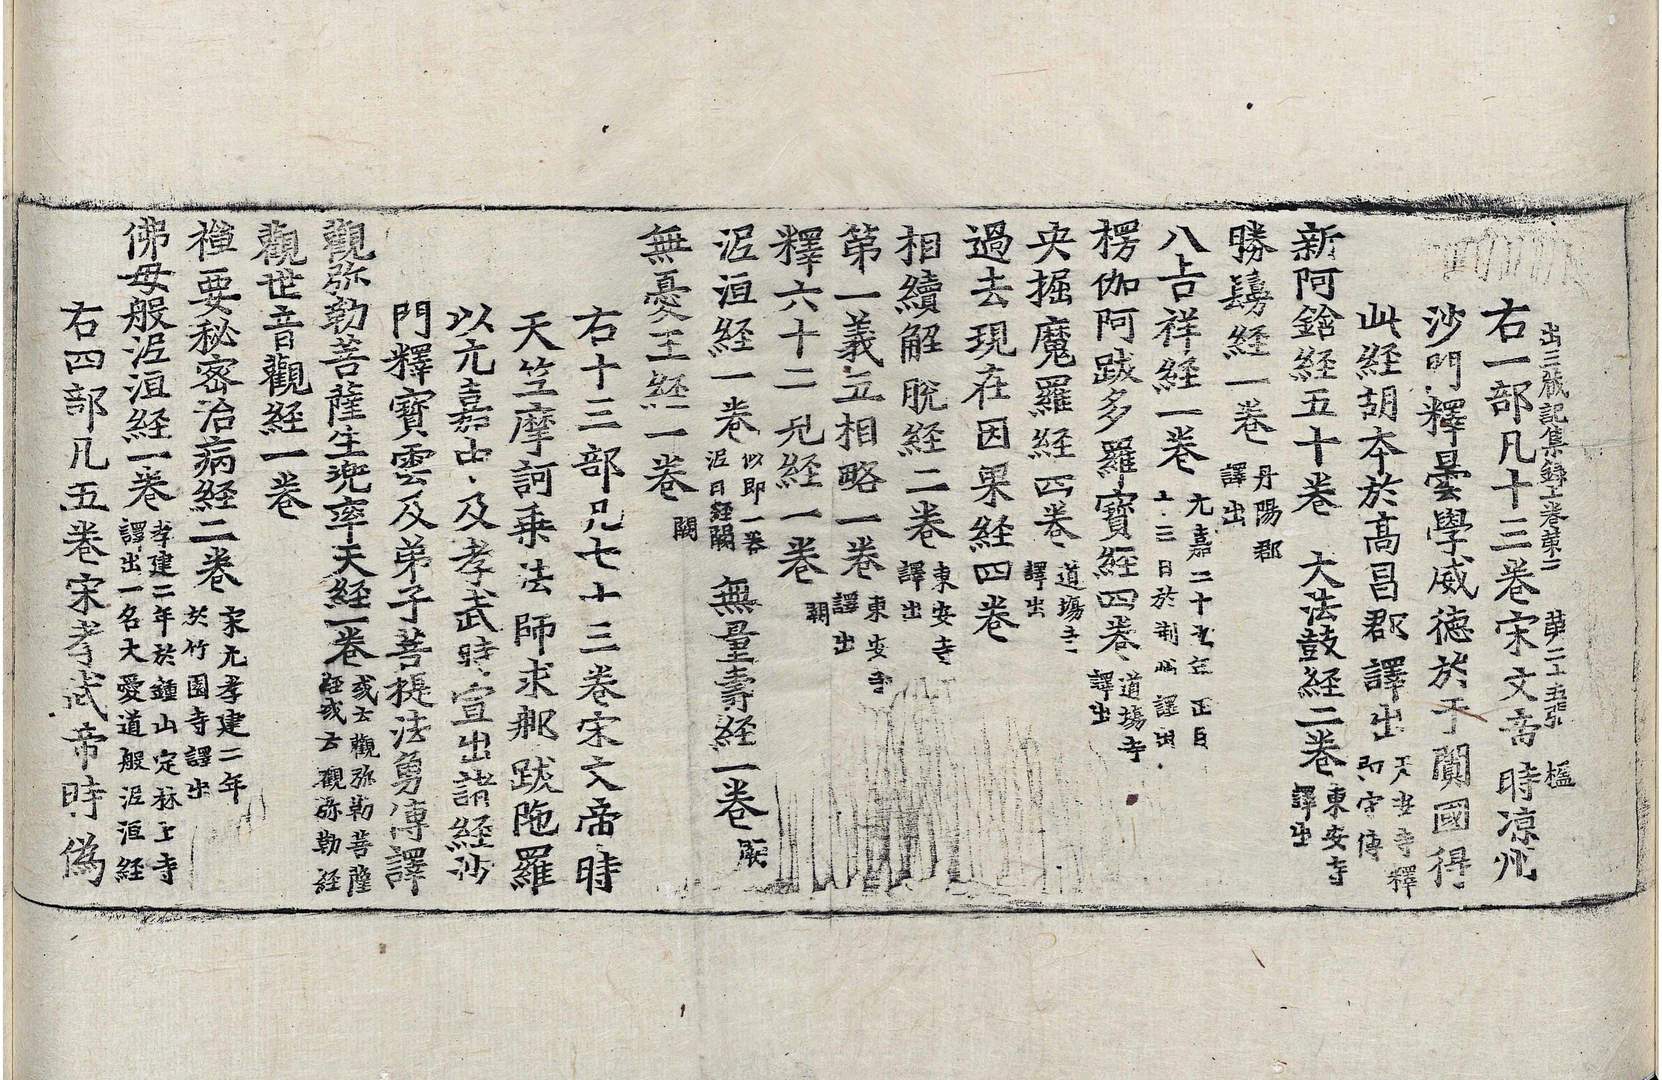 出三蔵記集錄上卷苐二　苐二十五張　楹
右一部凡十三巻宋文帝時涼州
沙門釋曇學威徳於于闐國得
此経胡本於髙昌郡譯出天安寺釋
弘宗傳
新阿鋡経五十巻　大法鼓経二巻東安寺
譯出
勝鬘経一巻丹陽郡
譯出
八吉祥経一巻元嘉二十九年正月
十三日於荆州譯出
楞伽阿跋多羅寶経四巻道場寺
譯出
央掘魔羅経四巻道場寺
譯出
過去現在因果経四巻
相續解脫経二巻東安寺
譯出
第一義五相略一巻東安寺
譯出
釋六十二見経一巻闕
泥洹経一巻似即一巻
泥日経闕　無量壽経一巻闕
無憂王経一巻闕
右十三部凡七十三巻宋文帝時
天竺摩訶乗法師求那跋陁羅
以元嘉中及孝武時宣出諸経沙
門釋寶雲及弟子菩提法勇傳譯
觀弥勒菩薩生兠率天経一巻或云觀弥勒菩薩
経或云觀弥勒経
觀世音觀経一巻
禪要秘密治病経二巻宋元孝建二年
於竹園寺譯出
佛母般泥洹経一巻孝建二年於鍾山定林上寺
譯出一名大愛道般泥洹経
右四部凡五巻宋孝武帝時偽